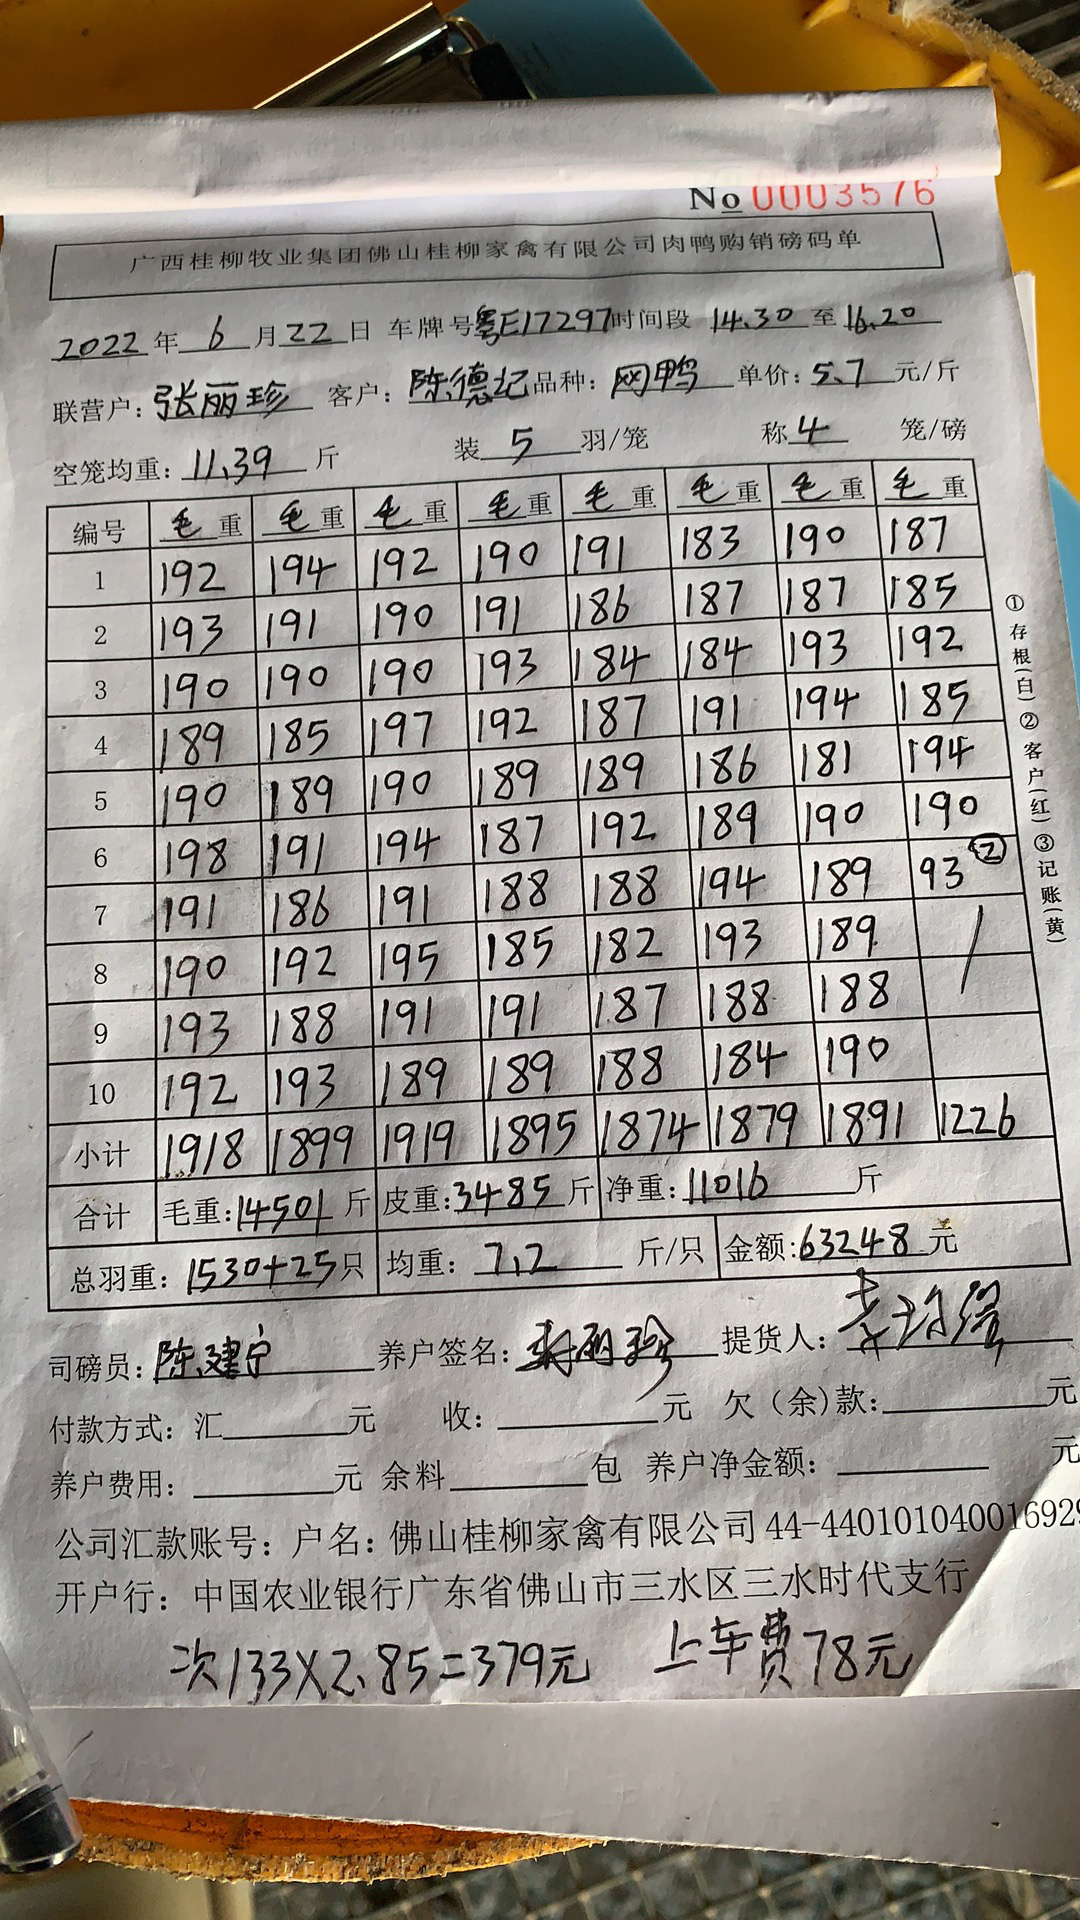 No 0003576
广西桂柳牧业集团佛山桂柳家禽有限公司肉鸭购销磅码单
2022 年 6 月 22 日 车牌号 粤E17297 时间段 14.30 至 16.20
联营户: 张丽珍 客户: 陈德记 品种: 网鸭 单价: 5.7 元/斤
空笼均重: 11.39 斤 装 5 羽/笼 称 4 笼/磅
编号 毛重 毛重 毛重 毛重 毛重 毛重 毛重 毛重
1 192 194 192 190 191 183 190 187
2 193 191 190 191 186 187 187 185
3 190 190 190 193 184 184 193 192
4 189 185 197 192 187 191 194 185
5 190 189 190 189 189 186 181 194
6 198 191 194 187 192 189 190 190
7 191 186 191 188 188 194 189 93 ②
8 190 192 195 185 182 193 189 /
9 193 188 191 191 187 188 188
10 192 193 189 189 188 184 190
小计 1918 1899 1919 1895 1874 1879 1891 1226
合计 毛重: 14501 斤 皮重: 3485 斤 净重: 11016 斤
总羽重: 1530+25 只 均重: 7.2 斤/只 金额: 63248 元
①存根(白)②客户(红)③记账(黄)
司磅员: 陈建宁 养户签名: 张丽珍 提货人:
付款方式: 汇 元 收: 元 欠(余)款: 元
养户费用: 元 余料 包 养户净金额: 元
公司汇款账号: 户名: 佛山桂柳家禽有限公司 44-4401010400016929
开户行: 中国农业银行广东省佛山市三水区三水时代支行
次133X2.85=379元 上车费78元